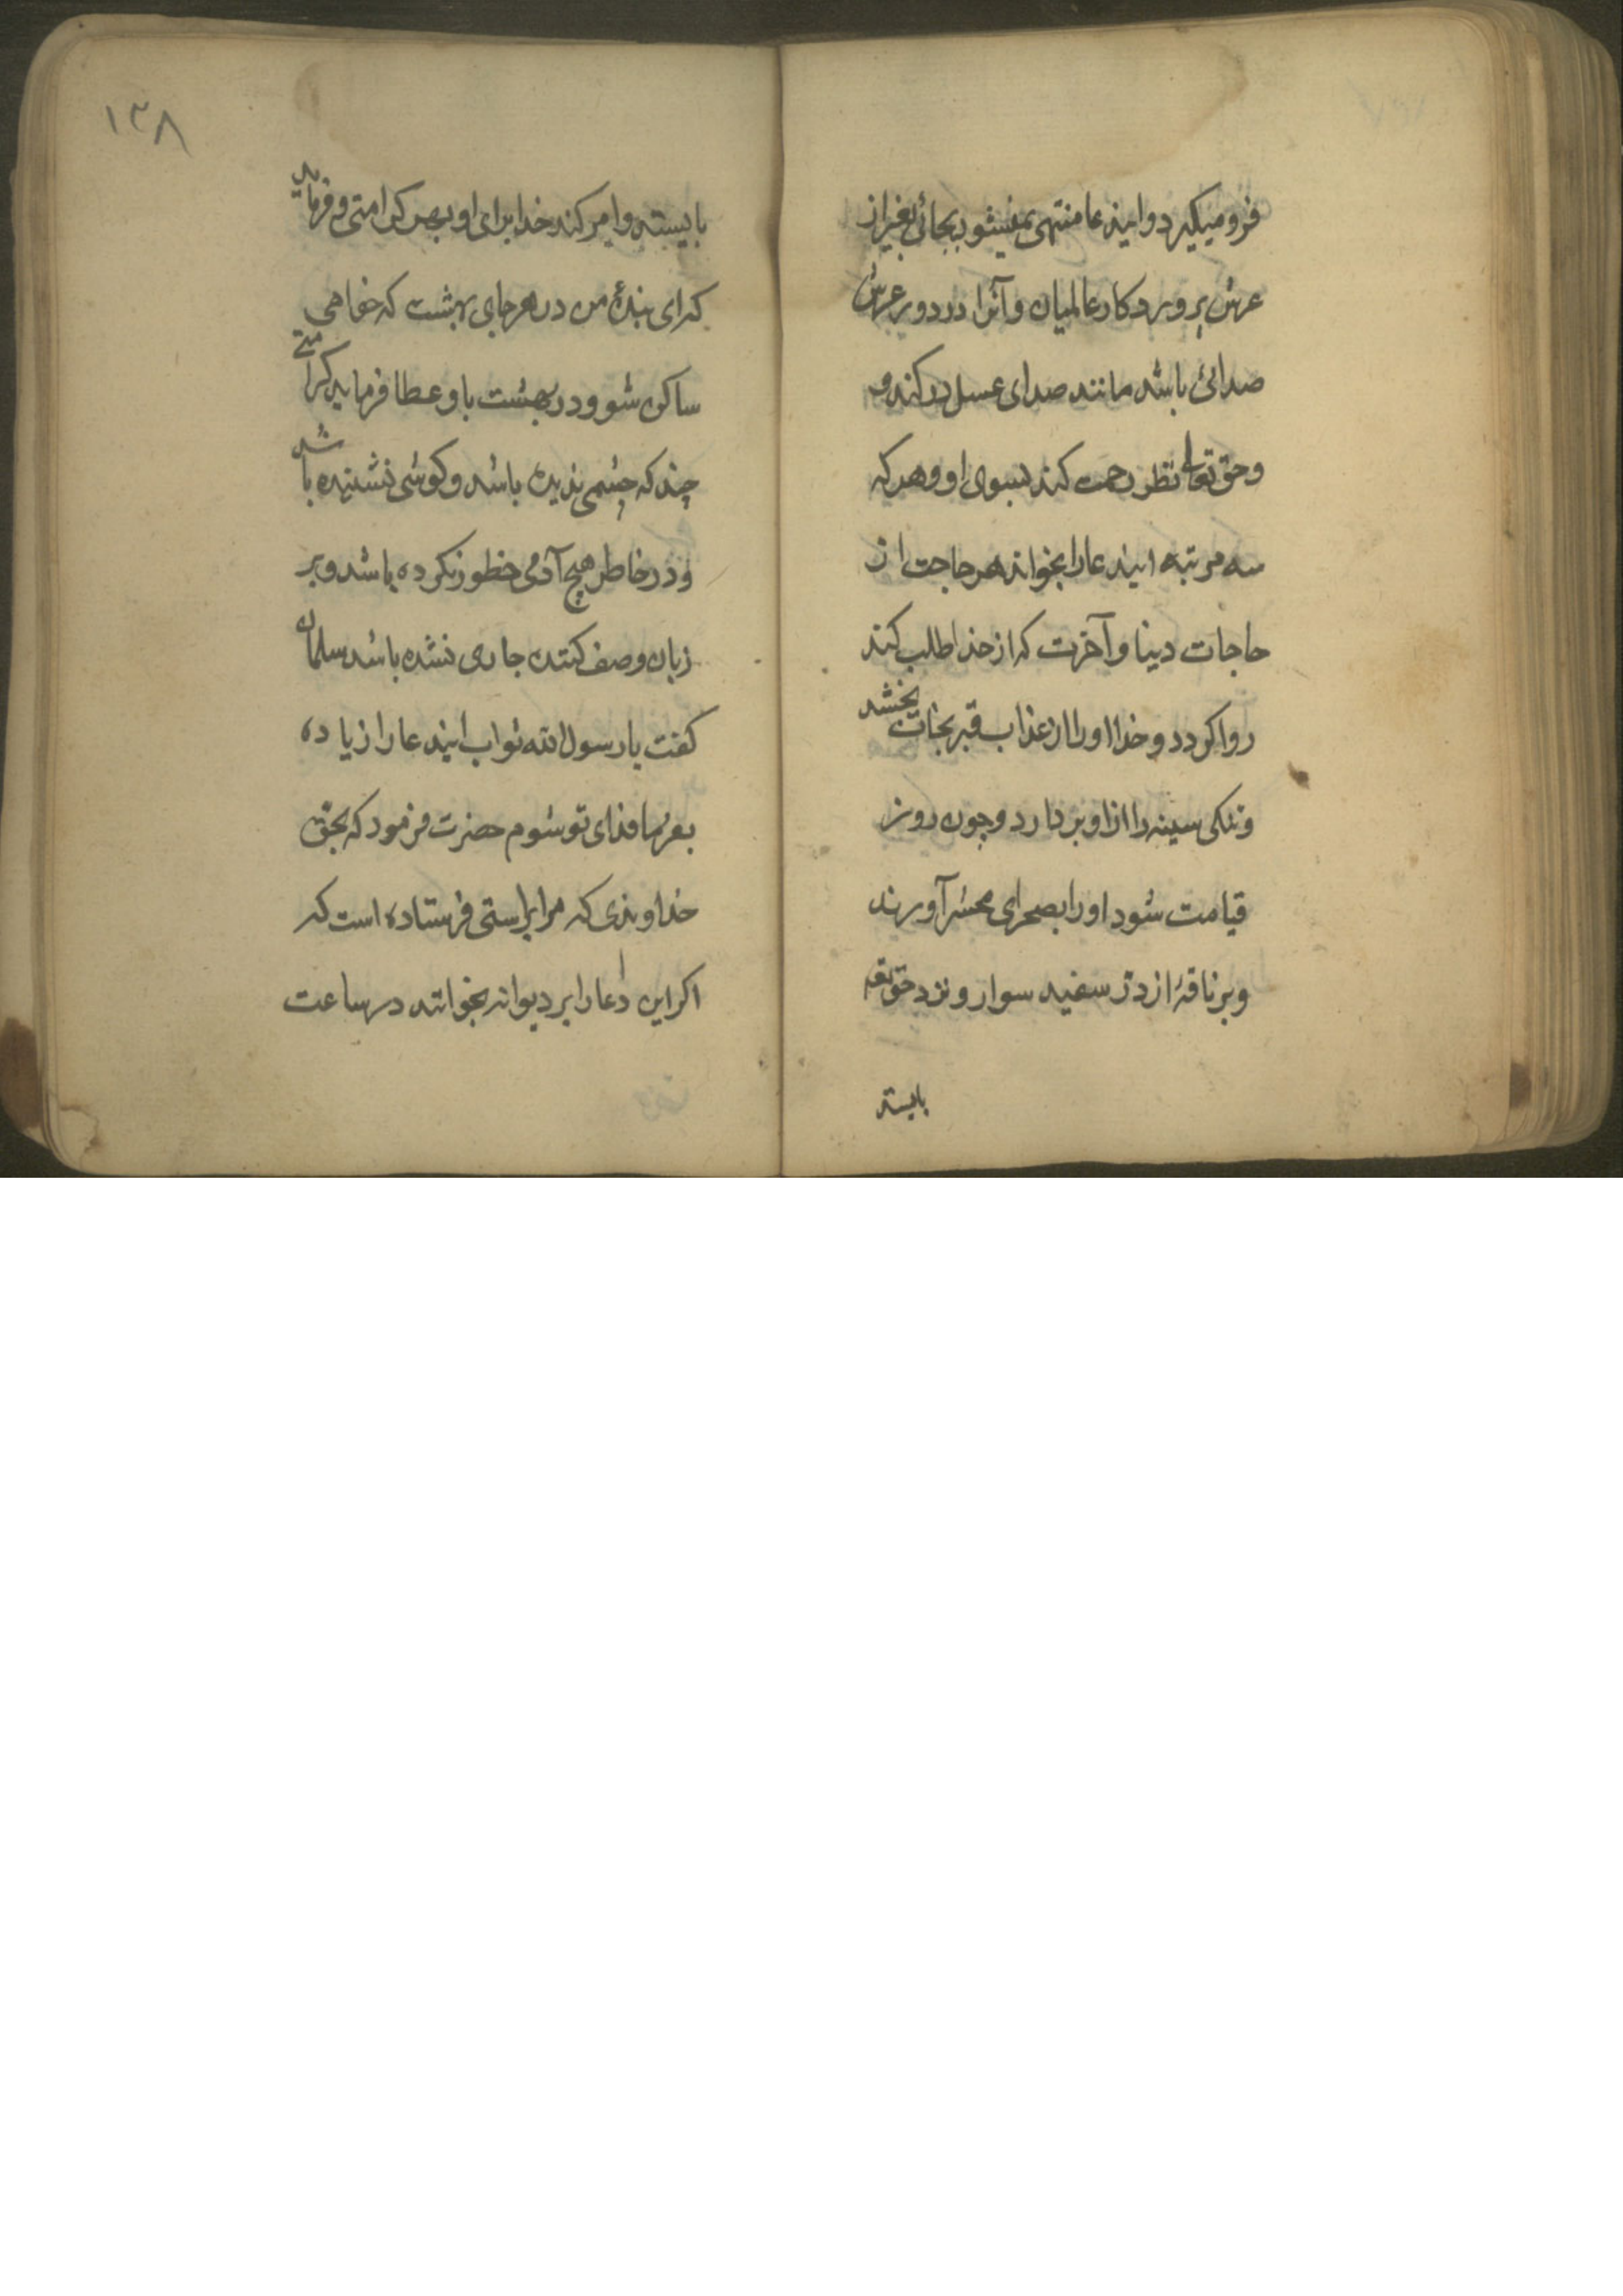 فرو میکیرد و ایندعا منتهی نمیشود بجائی بغیر از
عرش پروردکار عالمیان و آنرا در دور عرش
صدائی باشد مانند صدای عسل در کندو
و حق تعالی نظر رحمت کند بسوی او و هر که
سه مرتبه ایندعا را بخواند هر حاجت از
حاجات دینا و آخرت که از خدا طلب کند
روا کردد و خدا او را از عذاب قبر نجات بخشد
و تنکی سینه را از او بر دارد و چون روز
قیامت شود او را بصحرای محشر آورند
و بر ناقهٔ از در سفید سوار و نزد حق تعه
بایسته
۱۳۸
بایسته و امر کند خدا برای او بهر کرامتی و فرماید
که ای بندهٔ من در هر جای بهشت که خواهی
ساکن شو و در بهشت باو عطا فرماید کرامتے
چند که چشمی ندیده باشد و کوشی نشنیده باشد
و در خاطر هیچ آدمی خطور نکرده باشد و بر
زبان وصف کننده جاری نشده باشد سلمان
کفت یا رسول الله ثواب ایندعا را زیاده
بفرما فدای تو شوم حضرت فرمود که بحق
خداوندی که مرا براستی فرستاده است که
اکر این دعا را بر دیوانه بخوانند در ساعت